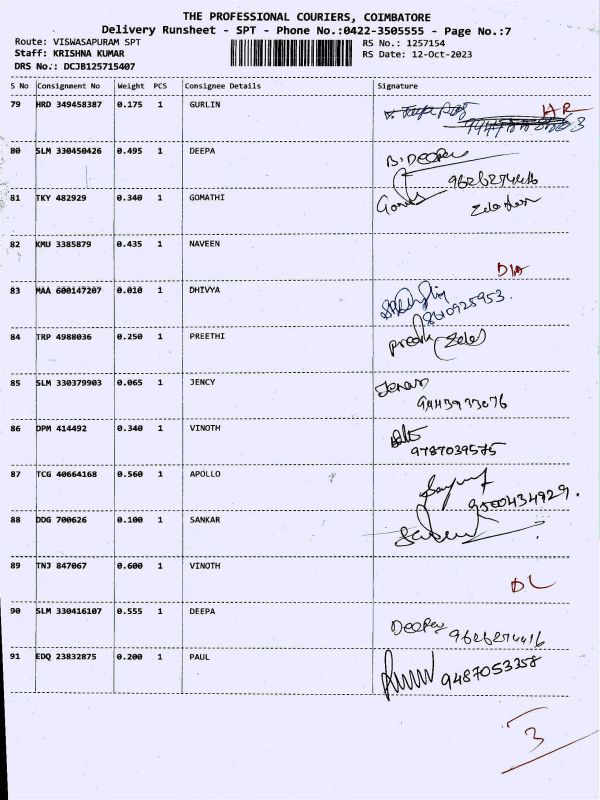 THE PROFESSIONAL COURIERS, COIMBATORE
Delivery Runsheet - SPT - Phone No.:0422-3505555 - Page No.:7
Route: VISWASAPURAM SPT
RS No.: 1257154
Staff: KRISHNA KUMAR
RS Date: 12-Oct-2023
DRS No.: DCJB125715407
S No Consignment No Weight PCS Consignee Details Signature
79 HRD 349458387 0.175 1 GURLIN
80 SLM 330450426 0.495 1 DEEPA B.Deepa
9626274416
81 TKY 482929 0.340 1 GOMATHI
82 KMU 3385879 0.435 1 NAVEEN
83 MAA 600147207 0.010 1 DHIVYA
8610925953.
84 TRP 4988036 0.250 1 PREETHI
85 SLM 330379903 0.065 1 JENCY
86 DPM 414492 0.340 1 VINOTH
9787039575
87 TCG 40664168 0.560 1 APOLLO
9500434929.
88 DDG 700626 0.100 1 SANKAR
89 TNJ 847067 0.600 1 VINOTH
DL
90 SLM 330416107 0.555 1 DEEPA Deepa
9626274416
91 EDQ 23832875 0.200 1 PAUL
9487053358
3